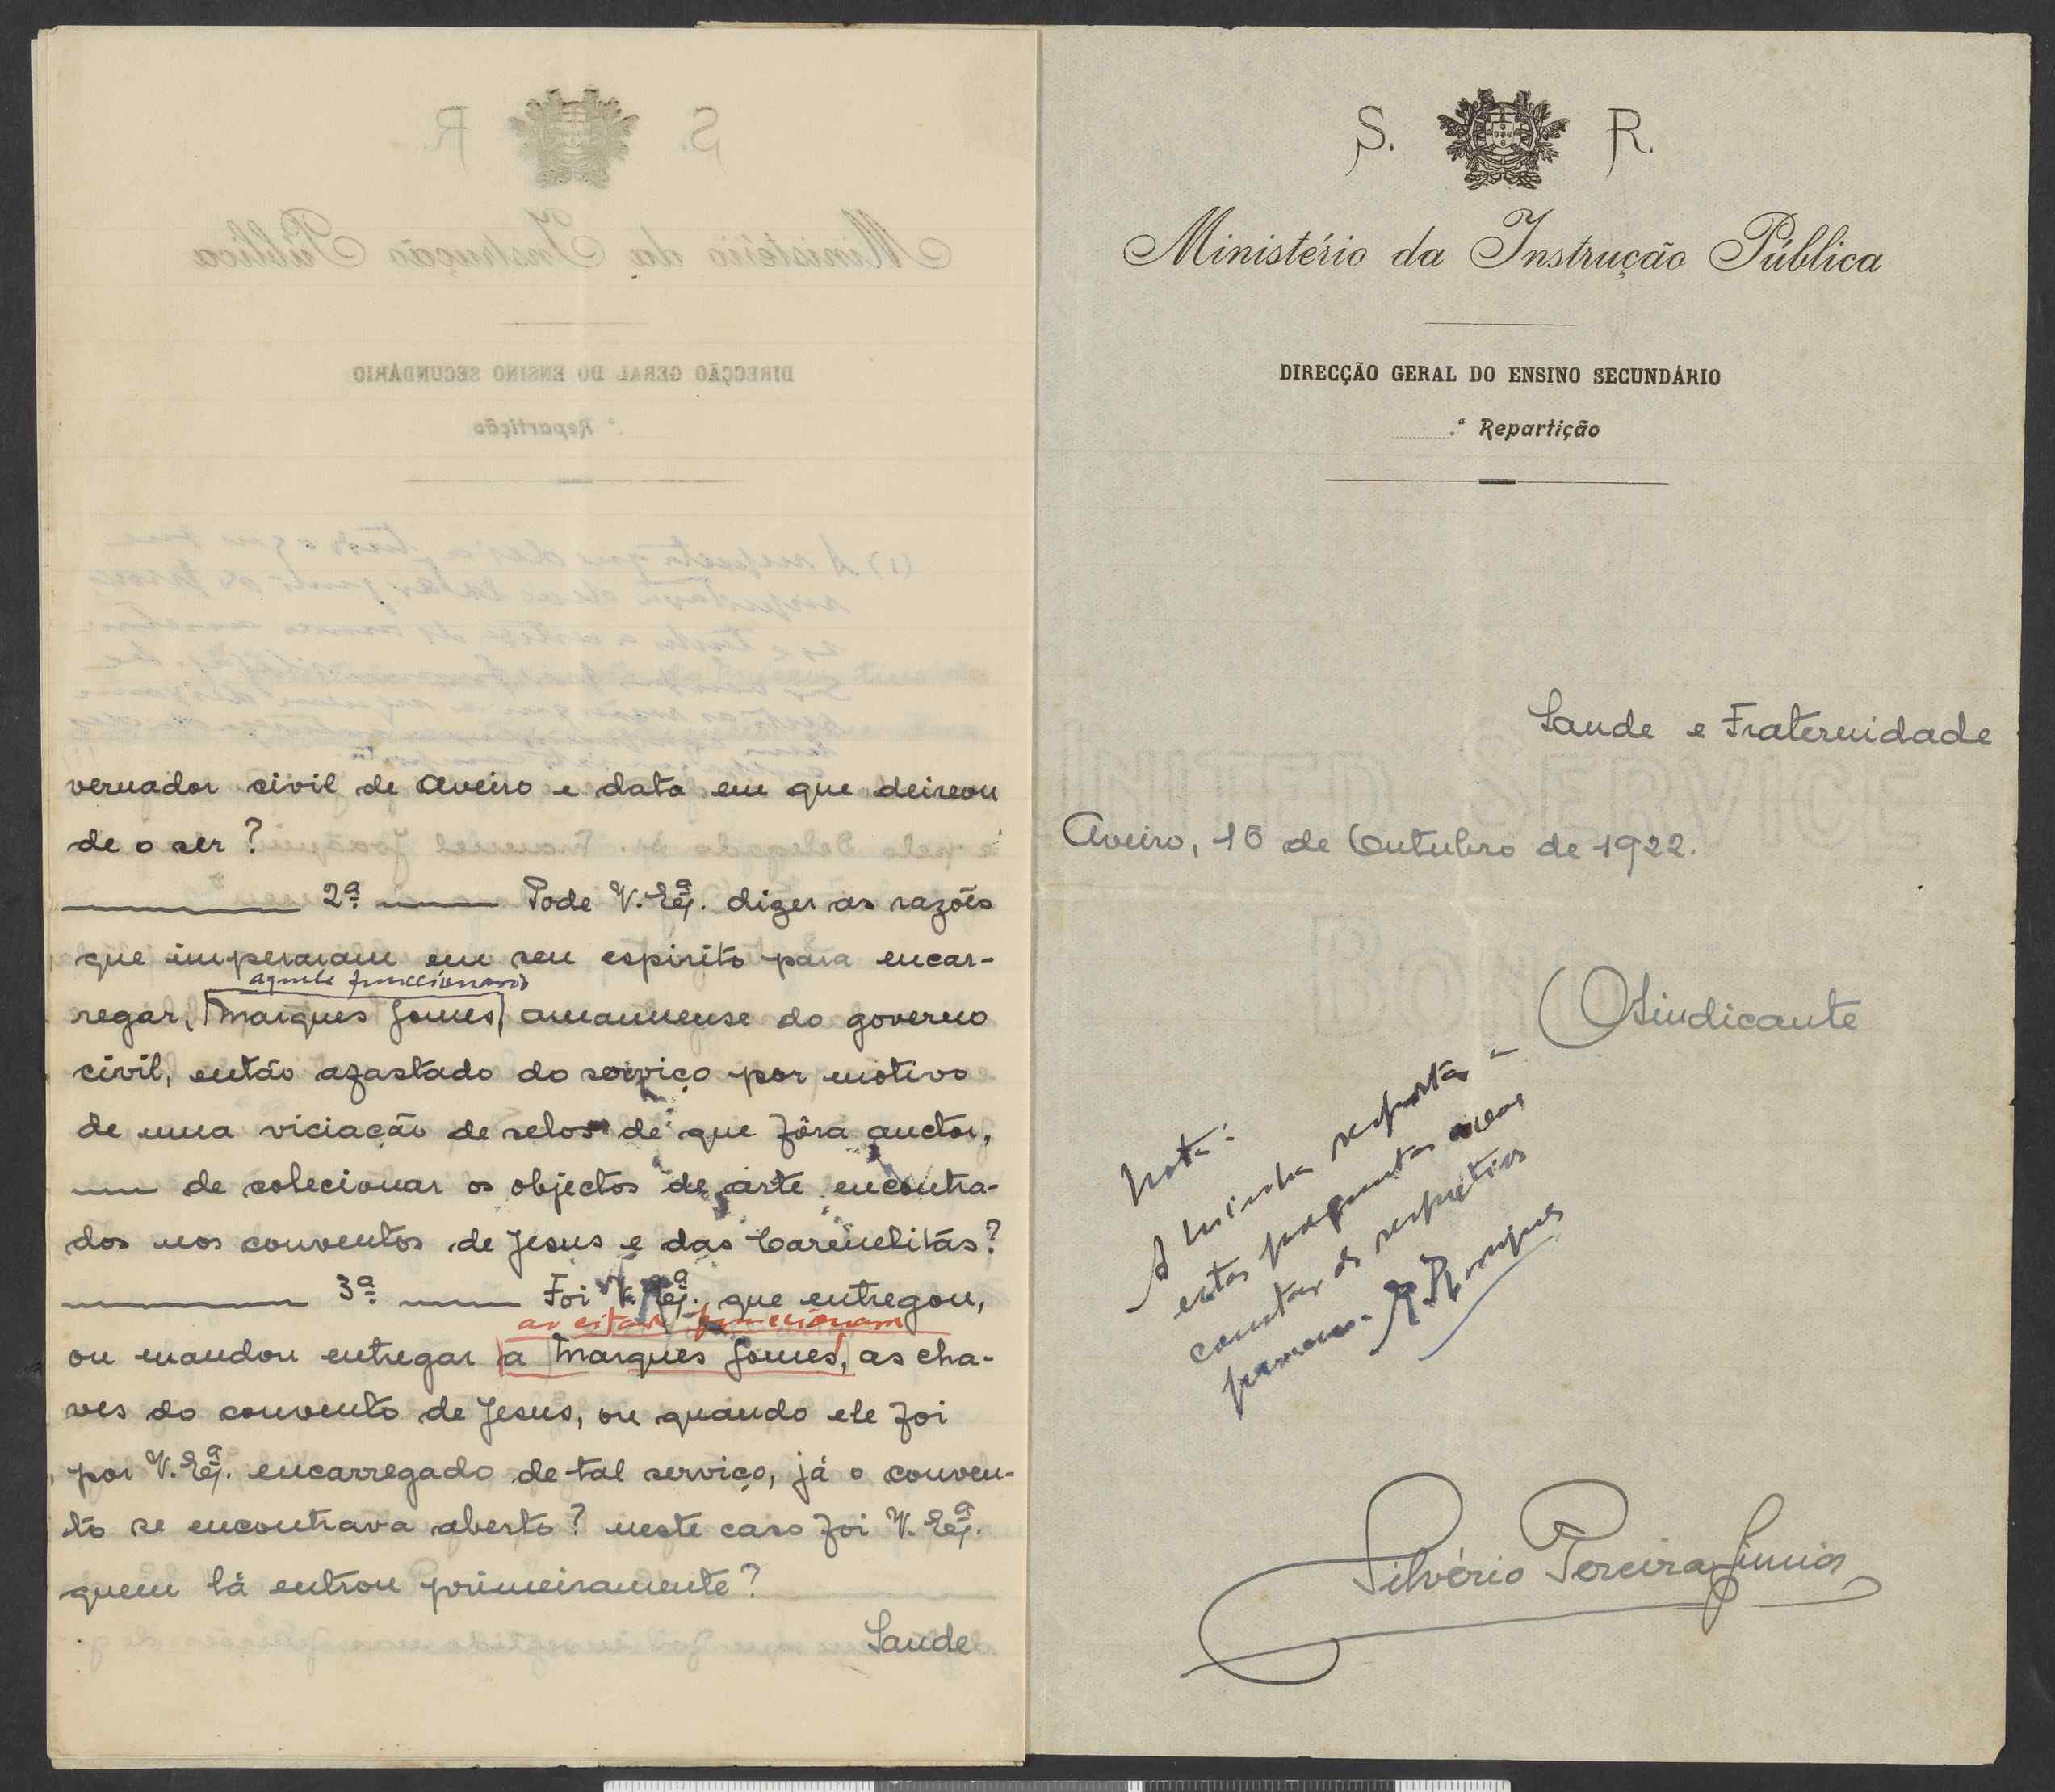 vernador civil de Aveiro e data em que deixou
de o ser?
2ª Pode V. Exª. dizer as razões
que imperaram em seu espirito para encar-
aquele funccionario
regar, Marques Gomes, amanuense do governo
civil, então afastado do serviço por motivo
de uma viciação de selos de que fôra auctor,
de colecionar os objectos de arte encontra-
dos nos conventos de Jesus e das Carmelitas?
3ª Foi V. Exª. que entregou,
ao citado funcionario
ou mandou entregar a Marques Gomes, as cha-
ves do convento de Jesus, ou quando ele foi
por V. Exª. encarregado de tal serviço, já o conven-
to se encontrava aberto? neste caso foi V. Exª.
quem lá entrou primeiramente?
Saude
S. R.
Ministério da Instrução Pública
DIRECÇÃO GERAL DO ENSINO SECUNDÁRIO
.ª Repartição
Saude e Fraternidade
Aveiro, 16 de Outubro de 1922.
O Sindicante
Nota:
A minha resposta a
estas perguntas
constam do respetivo
Silvério Pereira Junior